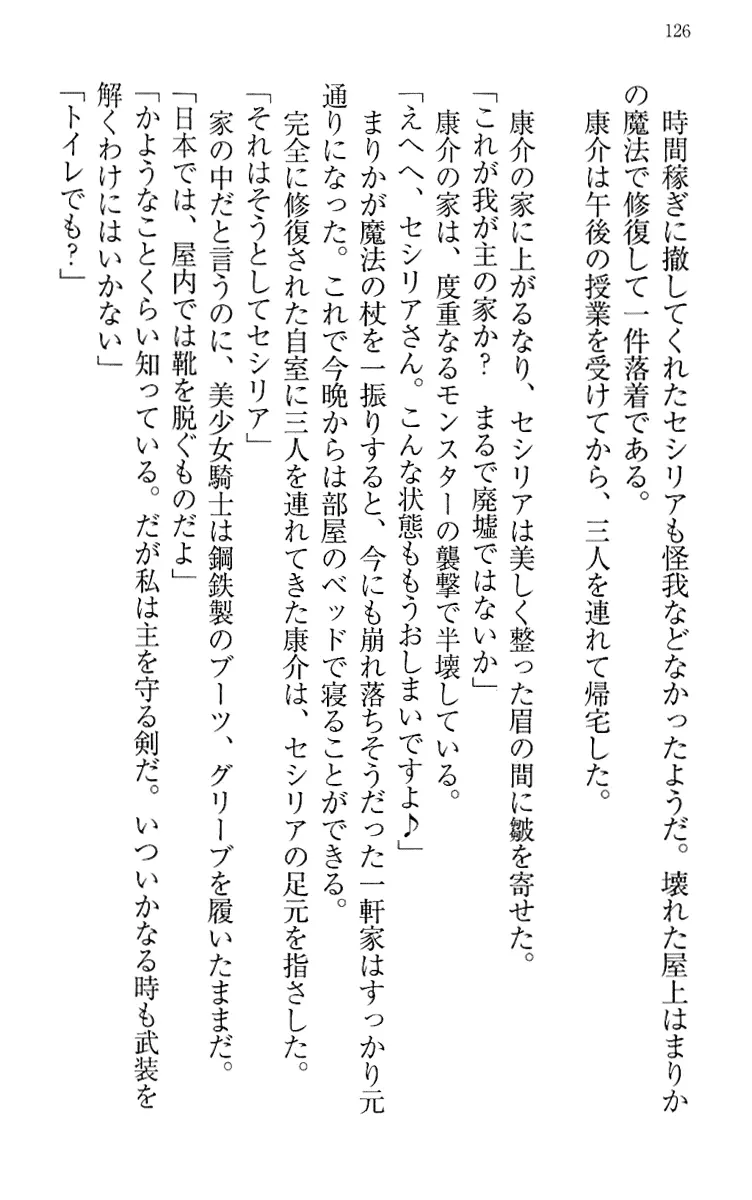 126
時間稼ぎに撤してくれたセシリアも怪我などなかったようだ。壊れた屋上はまりか
の魔法で修復して一件落着である。
康介は午後の授業を受けてから、三人を連れて帰宅した。
康介の家に上がるなり、セシリアは美しく整った眉の間に皺を寄せた。
「これが我が主の家か？　まるで廃墟ではないか」
康介の家は、度重なるモンスターの襲撃で半壊している。
「えへへ、セシリアさん。こんな状態ももうおしまいですよ♪」
まりかが魔法の杖を一振りすると、今にも崩れ落ちそうだった一軒家はすっかり元
通りになった。これで今晩からは部屋のベッドで寝ることができる。
完全に修復された自室に三人を連れてきた康介は、セシリアの足元を指さした。
「それはそうとしてセシリア」
家の中だと言うのに、美少女騎士は鋼鉄製のブーツ、グリーブを履いたままだ。
「日本では、屋内では靴を脱ぐものだよ」
「かようなことくらい知っている。だが私は主を守る剣だ。いついかなる時も武装を
解くわけにはいかない」
「トイレでも？」